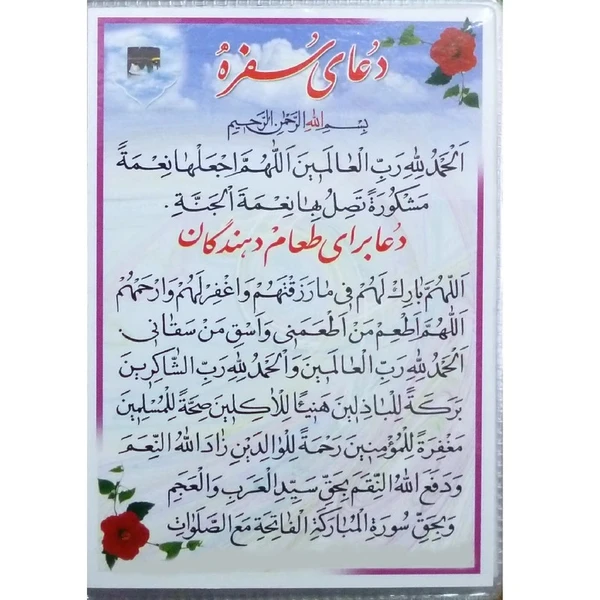 دُعای سُفره
بِسْمِ اللهِ الرَّحْمٰنِ الرَّحیمِ
اَلْحَمْدُ لِلّٰهِ رَبِّ الْعالَمینَ اَللّٰهُمَّ اجْعَلْها نِعْمَةً
مَشْکُورَةً تَصِلُ بِها نِعْمَةَ الْجَنَّةِ .
دُعا برای طعام دهندگان
اَللّٰهُمَّ بارِكْ لَهُمْ فی ما رَزَقْتَهُمْ وَ اغْفِرْ لَهُمْ وَ ارْحَمْهُمْ
اَللّٰهُمَّ اَطْعِمْ مَنْ اَطْعَمَنی وَ اَسْقِ مَنْ سَقانی .
اَلْحَمْدُ لِلّٰهِ رَبِّ الْعالَمینَ وَ الْحَمْدُ لِلّٰهِ رَبِّ الشّاکِرینَ
بَرَکَةً لِلْباذِلینَ هَنیئًا لِلْاٰکِلینَ صِحَّةً لِلْمُسْلِمینَ
مَغْفِرَةً لِلْمُؤْمِنینَ رَحْمَةً لِلْوالِدَیْنِ زادَ اللهُ النِّعَمَ
وَ دَفَعَ اللهُ النِّقَمَ بِحَقِّ سَیِّدِ الْعَرَبِ وَ الْعَجَمِ
وَ بِحَقِّ سُورَةِ الْمُبارَکَةِ الْفاتِحَةِ مَعَ الصَّلَواتِ